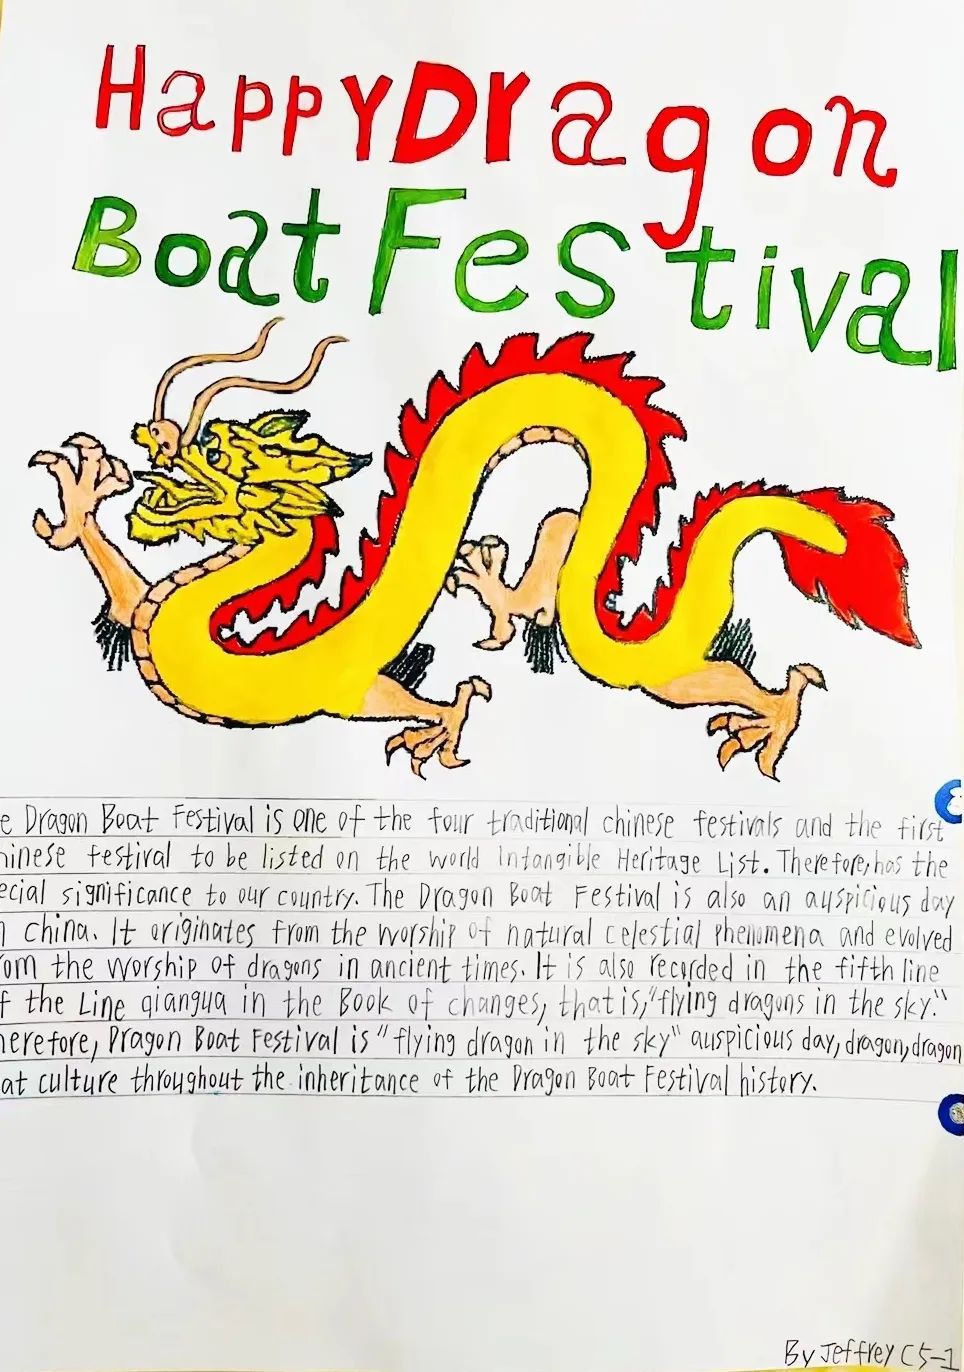 HappyDragon
BoatFestival
e Dragon Boat Festival is one of the four traditional chinese festivals and the first
hinese festival to be listed on the world Intangible Heritage List. Therefore, has the
ecial significance to our country. The Dragon Boat Festival is also an auspicious day
n china. It originates from the worship of natural celestial phenomena and evolved
rom the worship of dragons in ancient times. It is also recorded in the fifth line
f the Line qiangua in the Book of changes, that is, "flying dragons in the sky."
herefore, Dragon Boat Festival is "flying dragon in the sky" auspicious day, dragon, dragon
at culture throughout the inheritance of the Dragon Boat Festival history.
By Jeffrey C5-1